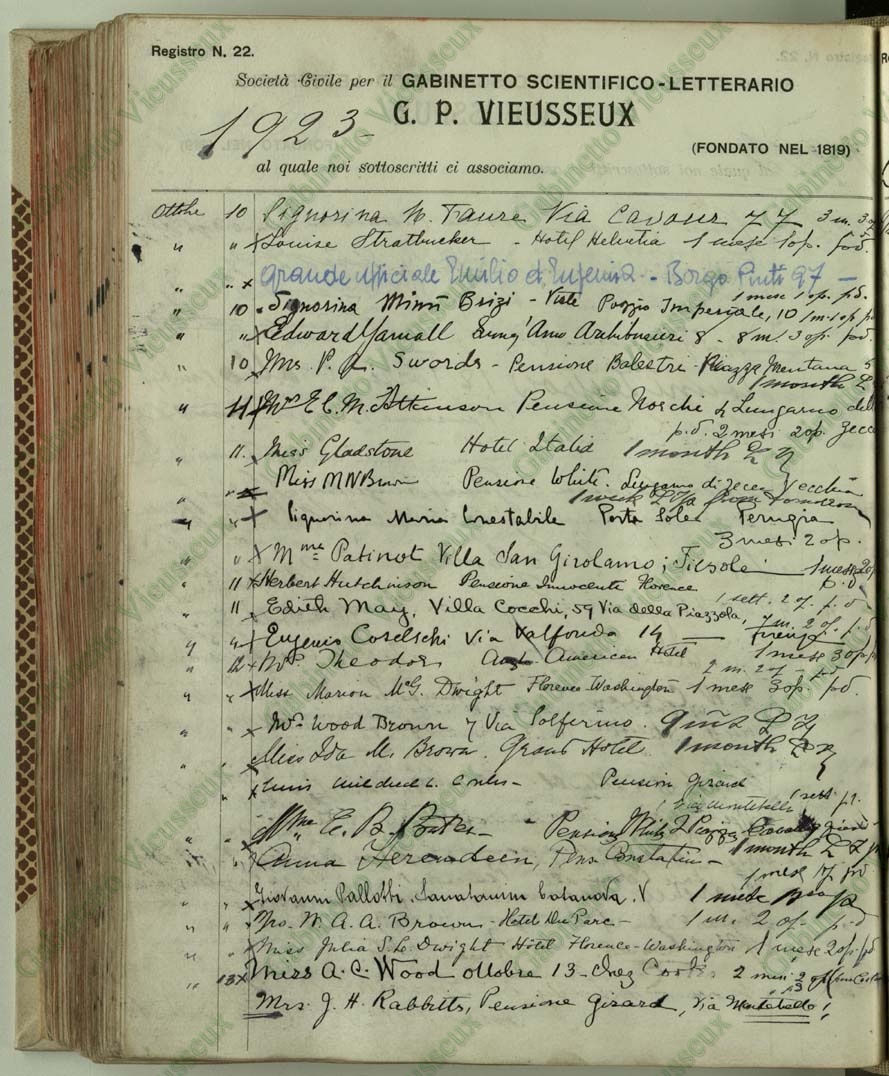 Registro N. 22.
Società Civile per il GABINETTO SCIENTIFICO-LETTERARIO
1923
G. P. VIEUSSEUX
(FONDATO NEL 1819)
al quale noi sottoscritti ci associamo.
Ottobre 10 Signorina N. Faure Via Cavour 77 3 m. 3
" " x Louise Stratbucker - Hotel Helvetia 1 mese 1 op. pd.
" " x Grande ufficiale Emilio d' Eugenio - Borgo Pinti 97 -
1 mese 1 op. pd.
" 10 Signorina Mimì Brizi - Viale Poggio Imperiale, 10 1 m. 1 op pd
" " x Edward Yarnall Lung' Arno Archibusieri 8 - 8 m. 3 op. pd.
" 10 Mrs. P. L. Swords - Pensione Balestri - Piazza Mentana 5
1 month
" 11 Mrs E. C. McAtkinson Pensione Norchi Lungarno del
p.d. 2 mesi 2 op. Zecca
" 11. Miss Gladstone Hotel Italia 1 month
" " Miss M N Brown Pensione White. Lungarno di Zecca Vecchia
1 week from tomorrow
" " x Signorina Maria Conestabile Porta Sole Perugia
3 mesi 2 op.
" " x Mme Patinot Villa San Girolamo; Fiesole 1 mese 2 op
p. d
" 11 x Herbert Hutchinson Pensione Innocente Florence
1 sett. 2 op. p. d
" 11 Edith May, Villa Cocchi, 59 Via della Piazzola,
Firenze
" " x Eugenio Coselschi Via Valfonda 14
1 mese 3 op.
" 12 x Mrs. Theodor American Hotel
2 m. 2 op - pd.
" " x Miss Marion McG. Dwight Florence-Washington 1 mese 3 op. pd.
" " x Mrs Wood Brown 7 Via Solferino.
" " x Miss Ida M. Brown. Grand Hotel 1 month
" x Miss Mildred L. Pension Girard
1 Via Montebello 1 sett. p.d.
" " x Mme E. B. - Pension White 2 Piazza
1 month
" " x Anna, Pens. -
1 mese pd
" " x Giovanni Pallotti. Casanova. V 1 mese
" " x W. A. A. Brown - Hotel Du Parc - 1 m. 2 op - p.d
" " x Miss Julia S. L. Dwight Hotel Florence-Washington 1 mese 2 op. pd
" 13 x Miss A. C. Wood ottobre 13 - chez Cook 2 mesi 2 op
Mrs. J. H. Rabbitts, Pensione Girard, Via Montebello 1